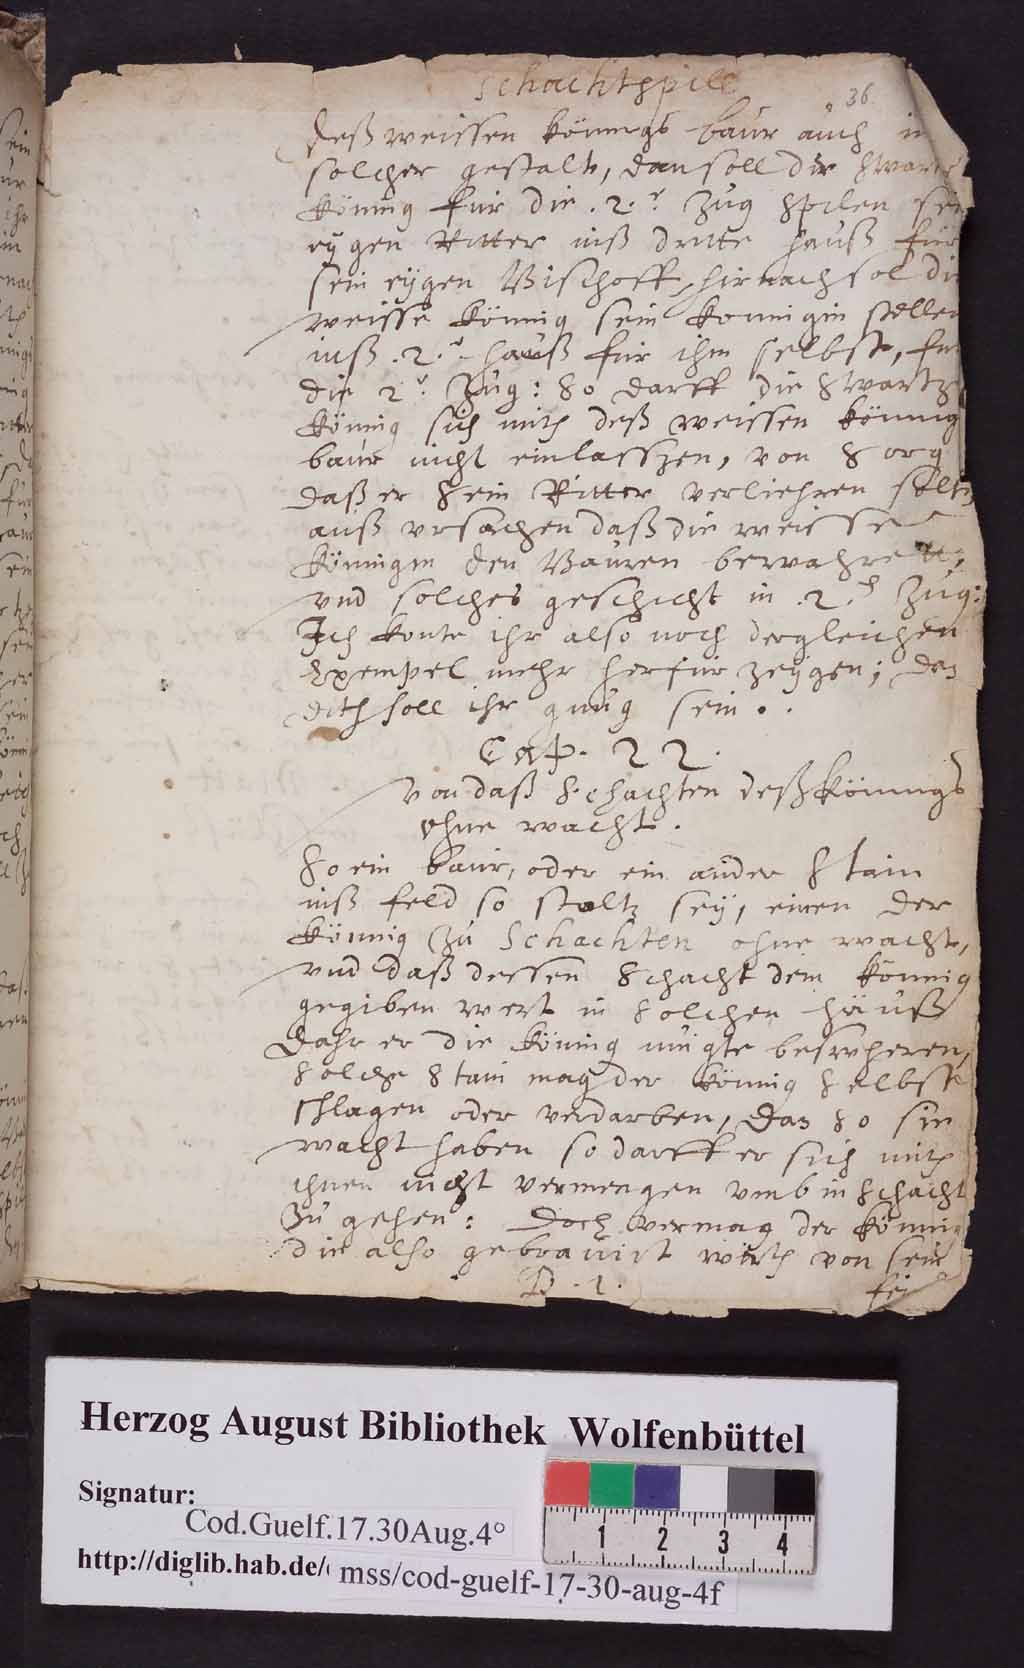 Schachtspill
36
deß weissen könings baur auch in
solcher gestalt, dan soll die swartz
köning für die .2.r zug spilen sein
eygen Ritter inß dritte hauß für
sein eygen Bischoff, hirnach sol die
weisse könnig sein konnigin stellen
inß .2.r hauß für ihm selbst, für
die 2r. Zug: so darff die swartze
könnig sich mith deß weissen könnigs
baur nicht einlasszen, von sorg
daß er sein Ritter verliehren solte
auß ursachen daß die weisse
könnigin den Bauren bewahrett,
und solches geschicht in .2.r Zug:
Ich konte ihr also noch dergleichen
Exempel mehr herfür zeijgen; dan
dith soll ihr gnug sein..
Cap. 22.
Von daß Schachten deß könnigs
ohne wacht.
So ein baur, oder ein ander stain
inß feld so stoltz seij, einen der
könnig zu Schachten ohne wacht,
und daß dessen schacht dem könnig
gegiben wert in solchen häuß
dahr er die könnig migte
solche stain mag der könnig selbsst
schlagen oder verdarben, dan so sie
wacht haben so darff er sich mith
ihnen nicht vermengen umb in schacht
zu gehen: doch vermag der könnig
die also gebrauirt wirth von sein
D.1.
Herzog August Bibliothek Wolfenbüttel
Signatur:
Cod.Guelf.17.30Aug.4°
http://diglib.hab.de/ mss/cod-guelf-17-30-aug-4f
1 2 3 4